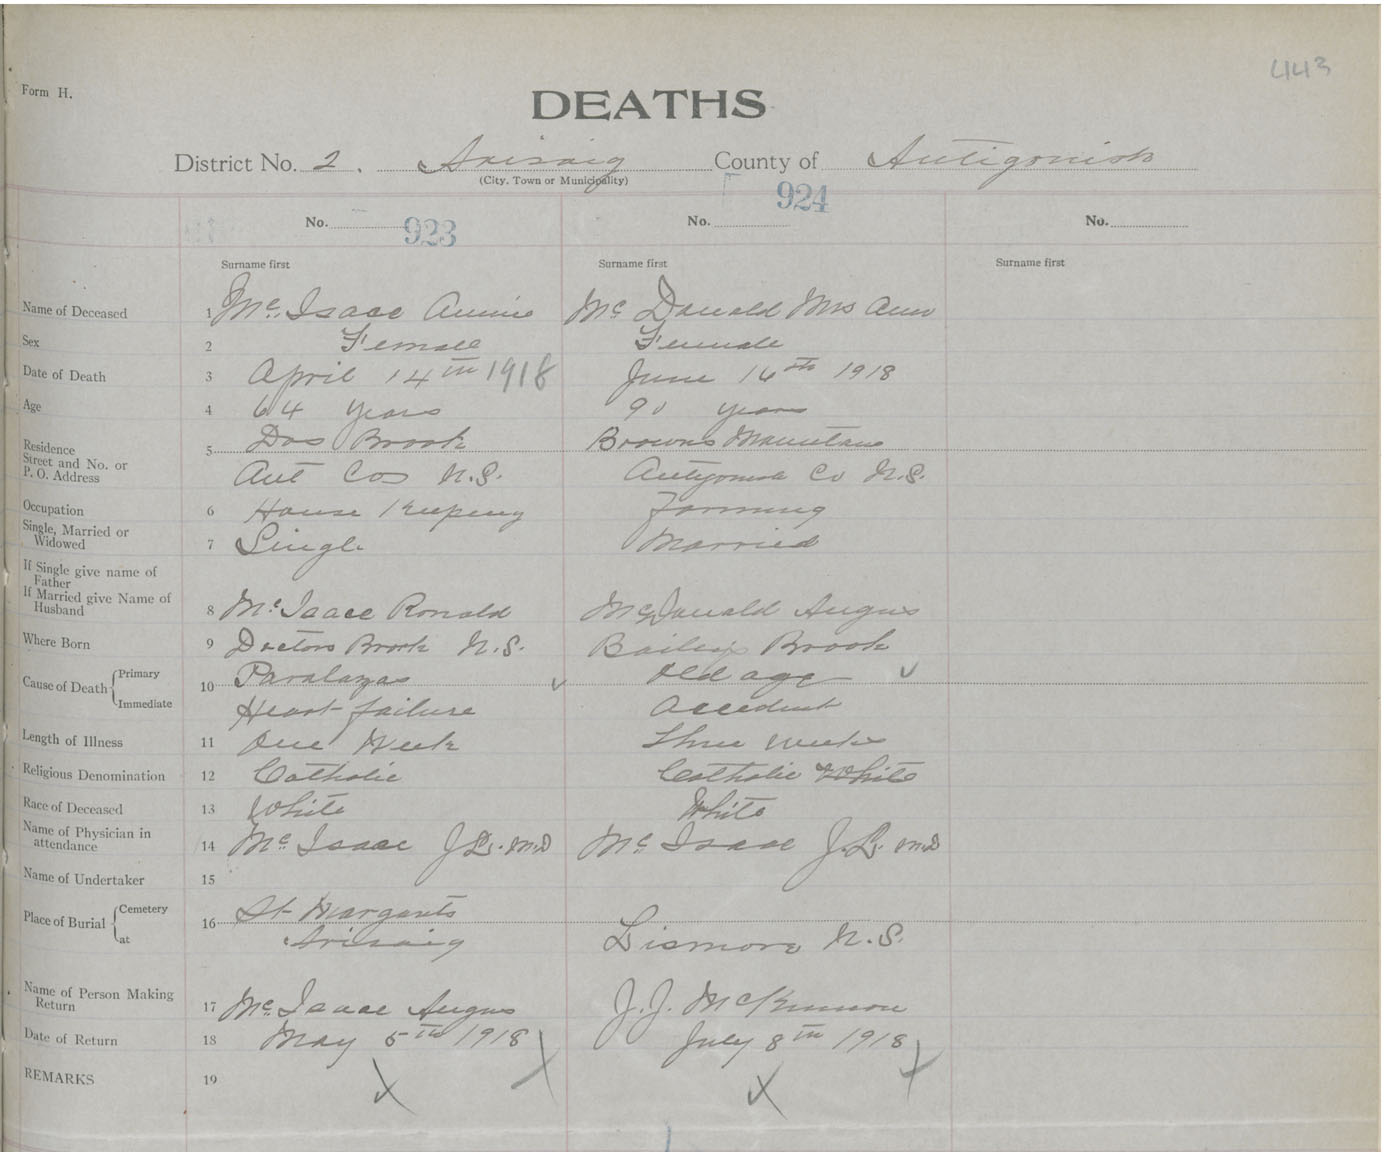 443
Form H.
DEATHS
District No. 2. Arisaig County of Antigonish
(City, Town or Municipality)
No. 923 No. 924 No.
Surname first Surname first Surname first
Name of Deceased 1 Mc. Isaac Annie McDonald Mrs Ann
Sex 2 Female Female
Date of Death 3 April 14th 1918 June 16th 1918
Age 4 64 years 90 years
Residence 5 Dos Brook Browns Mountain
Street and No. or
P. O. Address Ant Co N.S. Antigonish Co N.S.
Occupation 6 House Keeping Farming
Single, Married or
Widowed 7 Single Married
If Single give name of
Father
If Married give Name of
Husband 8 McIsaac Ronald McDonald Angus
Where Born 9 Doctors Brook N.S. Baileys Brook
Cause of Death { Primary 10 Paralazas Old age
Immediate Heart failure Accident
Length of Illness 11 One Week Three weeks
Religious Denomination 12 Catholic Catholic White
Race of Deceased 13 White White
Name of Physician in
attendance 14 McIsaac J.L. M.D McIsaac J.L. M.D
Name of Undertaker 15
Place of Burial { Cemetery 16 St Margarets
at Arisaig Lismore N.S.
Name of Person Making
Return 17 McIsaac Angus J.J. McKinnon
Date of Return 18 May 5th 1918 July 8th 1918
REMARKS 19 X X